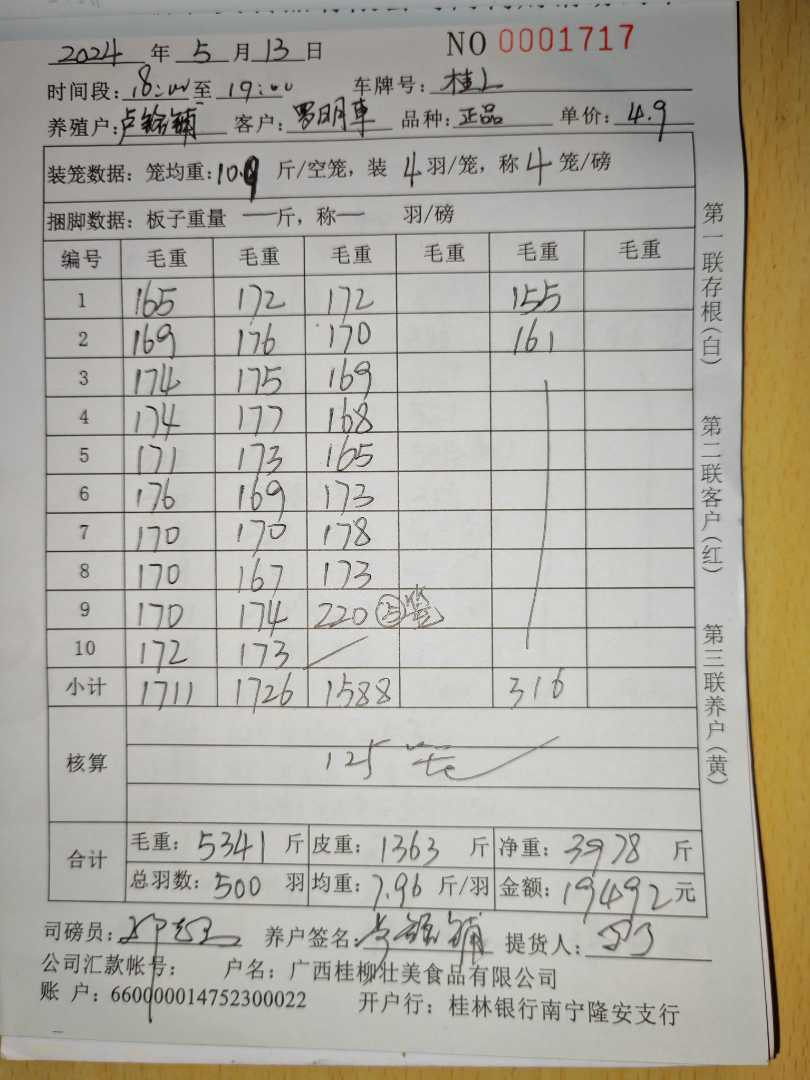 2024 年 5 月 13 日 NO 0001717
时间段: 18:00 至 19:00 车牌号: 桂L
养殖户: 卢铭辅 客户: 罗明車 品种: 正品 单价: 4.9
装笼数据: 笼均重: 10.9 斤/空笼, 装 4 羽/笼, 称 4 笼/磅
捆脚数据: 板子重量 — 斤, 称 — 羽/磅
编号 毛重 毛重 毛重 毛重 毛重 毛重
1 165 172 172 155
2 169 176 170 161
3 174 175 169
4 174 177 168
5 171 173 165
6 176 169 173
7 170 170 178
8 170 167 173
9 170 174 220 ⑤笼
10 172 173
小计 1711 1726 1588 316
核算 125 笼
合计 毛重: 5341 斤 皮重: 1363 斤 净重: 3978 斤
总羽数: 500 羽 均重: 7.96 斤/羽 金额: 19492 元
司磅员: 养户签名: 提货人:
公司汇款帐号: 户名: 广西桂柳壮美食品有限公司
账 户: 660000014752300022 开户行: 桂林银行南宁隆安支行
第一联存根(白) 第二联客户(红) 第三联养户(黄)